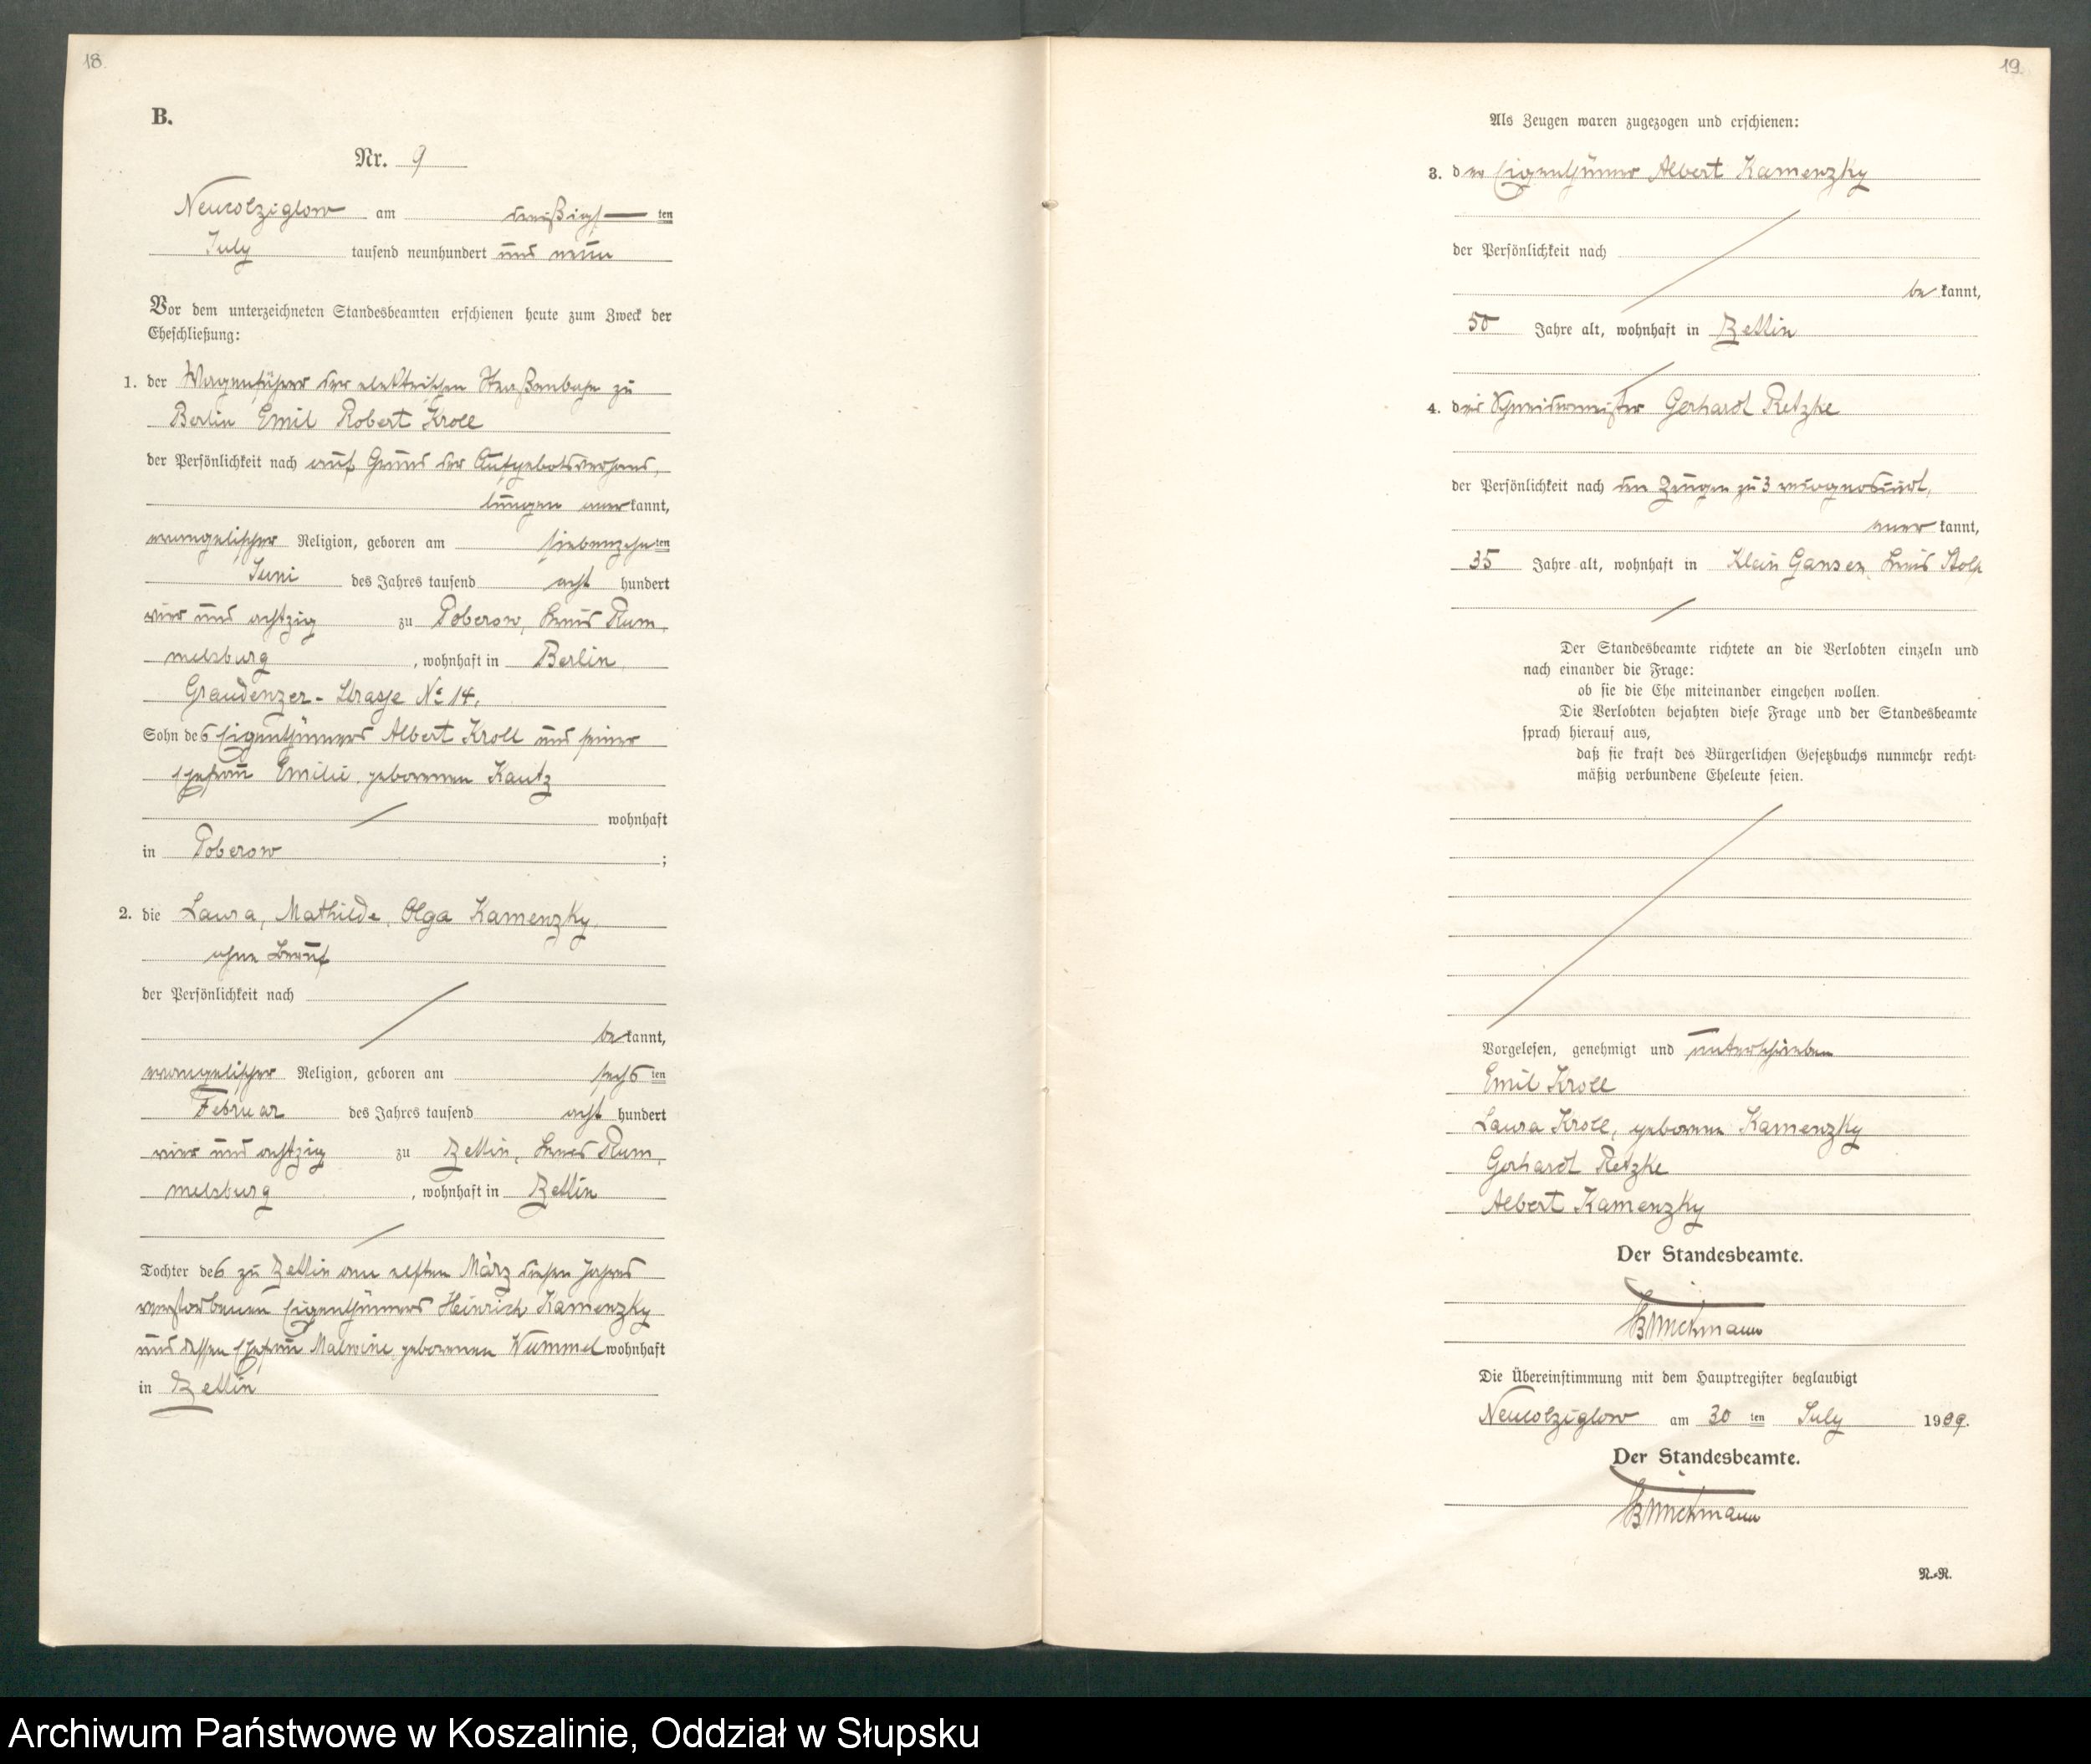 18.
B.
Nr. 9
Neukolziglow am dreißigsten
July tausend neunhundert und neun
Vor dem unterzeichneten Standesbeamten erschienen heute zum Zweck der
Eheschließung:
1. der Wagenführer der elektrischen Straßenbahn zu
Berlin Emil Robert Kroll
der Persönlichkeit nach auf Grund der Aufgebotsverhand,
lungen anerkannt,
evangelischer Religion, geboren am siebenzehnten
Juni des Jahres tausend acht hundert
vier und achtzig zu Poberow, Kreis Rum,
melsburg, wohnhaft in Berlin
Graudenzer-Strasse No 14.
Sohn des Eigenthümers Albert Kroll und seiner
Ehefrau Emilie, geborenen Kautz
wohnhaft
in Poberow;
2. die Laura, Mathilde, Olga Kamenzky,
ohne Beruf
der Persönlichkeit nach
bekannt,
evangelischer Religion, geboren am sechsten
Februar des Jahres tausend acht hundert
vier und achtzig zu Zettin, Kreis Rum,
melsburg, wohnhaft in Zettin
Tochter des zu Zettin am elften März diesen Jahres
verstorbenen Eigenthümers Heinrich Kamenzky
und dessen Ehefrau Malwine, geborenen Wummel wohnhaft
in Zettin
19.
Als Zeugen waren zugezogen und erschienen:
3. der Eigenthümer Albert Kamenzky
der Persönlichkeit nach
bekannt,
50 Jahre alt, wohnhaft in Zettin
4. der Schneidermeister Gerhardt Retzke
der Persönlichkeit nach den Zeugen zu 3 rekognosziert,
anerkannt,
35 Jahre alt, wohnhaft in Klein Gansen, Kreis Stolp
Der Standesbeamte richtete an die Verlobten einzeln und
nach einander die Frage:
ob sie die Ehe miteinander eingehen wollen.
Die Verlobten bejahten diese Frage und der Standesbeamte
sprach hierauf aus,
daß sie kraft des Bürgerlichen Gesetzbuchs nunmehr recht-
mäßig verbundene Eheleute seien.
Vorgelesen, genehmigt und unterschrieben
Emil Kroll
Laura Kroll, geborene Kamenzky
Gerhardt Retzke
Albert Kamenzky
Der Standesbeamte.
Die Übereinstimmung mit dem Hauptregister beglaubigt
Neukolziglow am 30 ten July 1909.
Der Standesbeamte.
N.-R.
Archiwum Państwowe w Koszalinie, Oddział w Słupsku